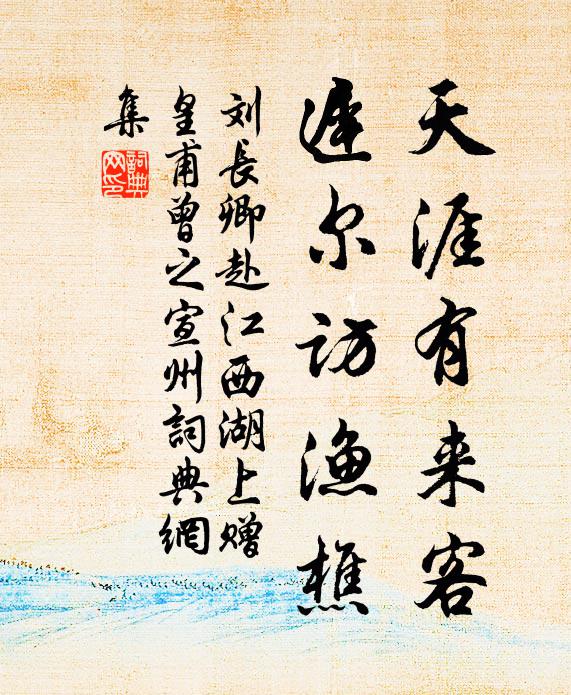 天涯有来客
遲尔访渔樵
刘長卿赴江西湖上赠
皇甫曾之宣州詞典網
集
詞典网印